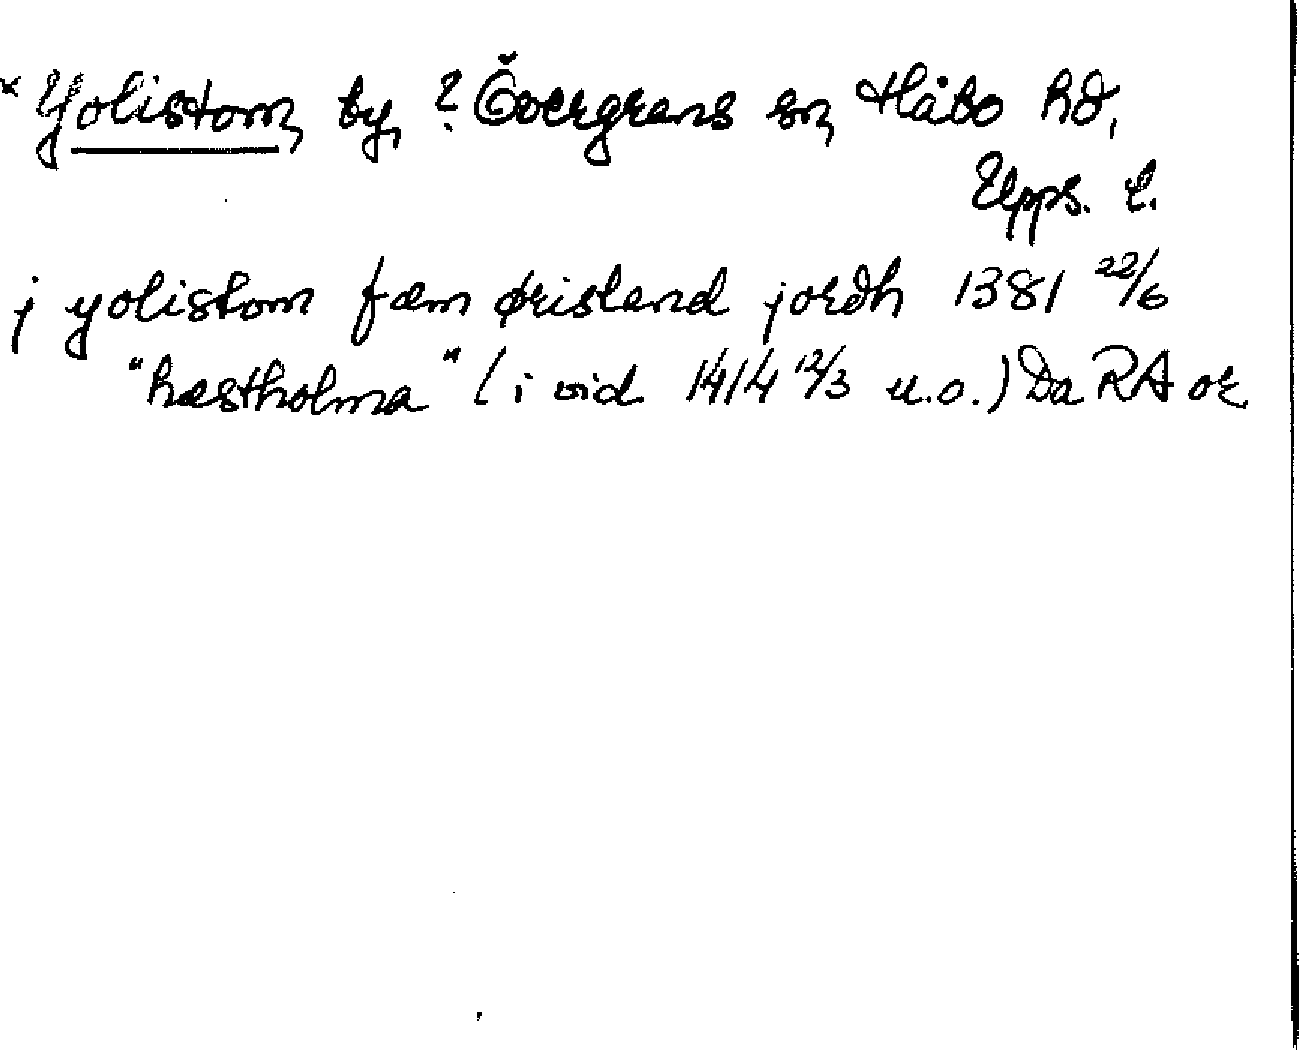 * Yolistom, by, ? Övergrans sn, Håbo hd,
Upps. l.
j yolistom fæm ørisland jordh 1381 22/6
"hæstholma" (i vid. 1414 12/3 u.o.) Da RA or